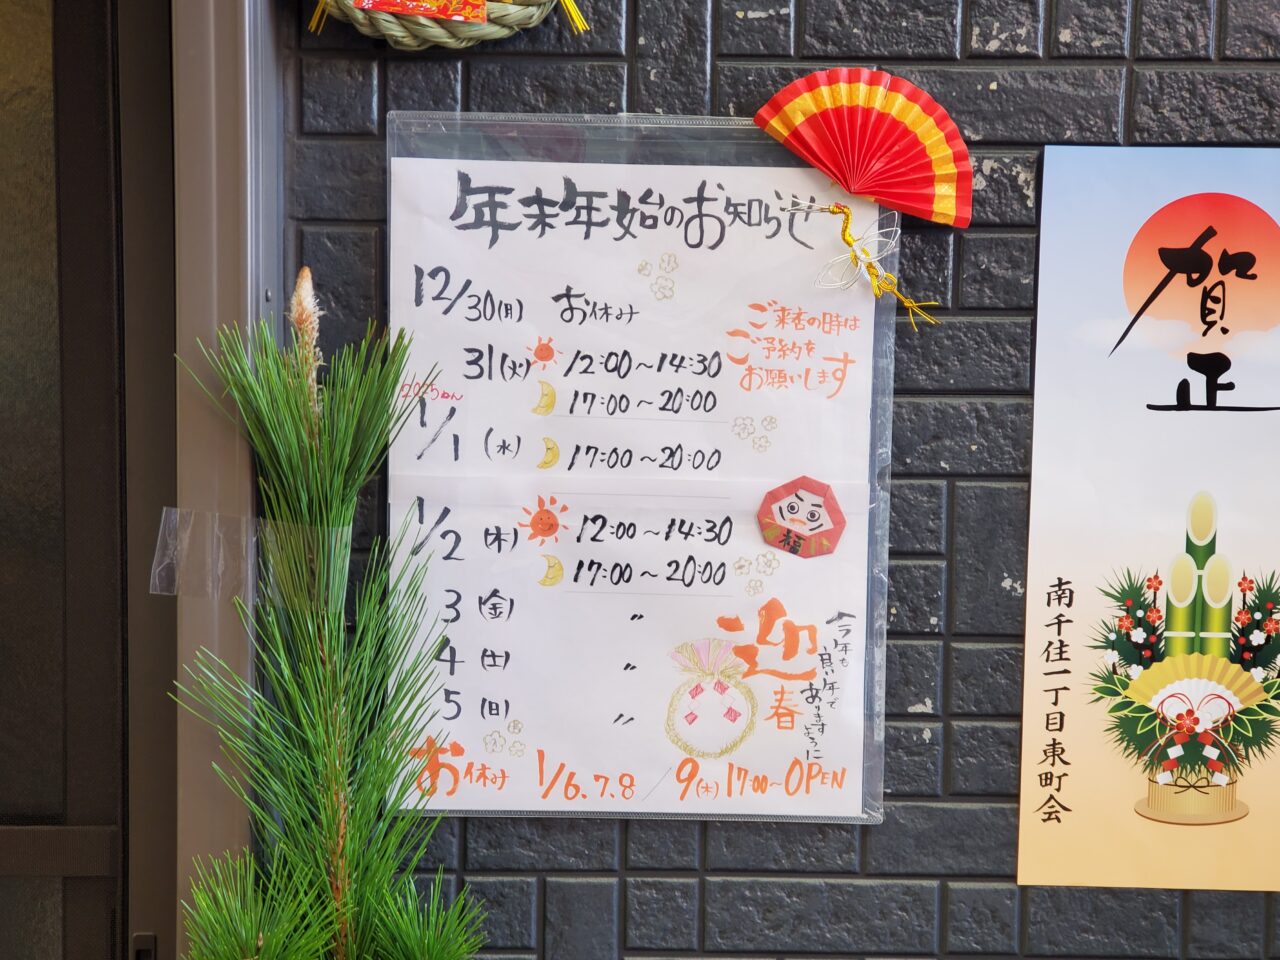 年末年始のお知らせ
12/30(月) お休み
ご来店の時は
ご予約を
お願いします
31(火) 12:00~14:30
17:00~20:00
2025ねん
1/1(水) 17:00~20:00
1/2(木) 12:00~14:30
17:00~20:00
福
3(金) 〃
4(土) 〃
5(日) 〃
迎春
今年も
良い年で
あります
ように
お休み 1/6.7.8/9(木)17:00~OPEN
賀正
南千住一丁目東町会